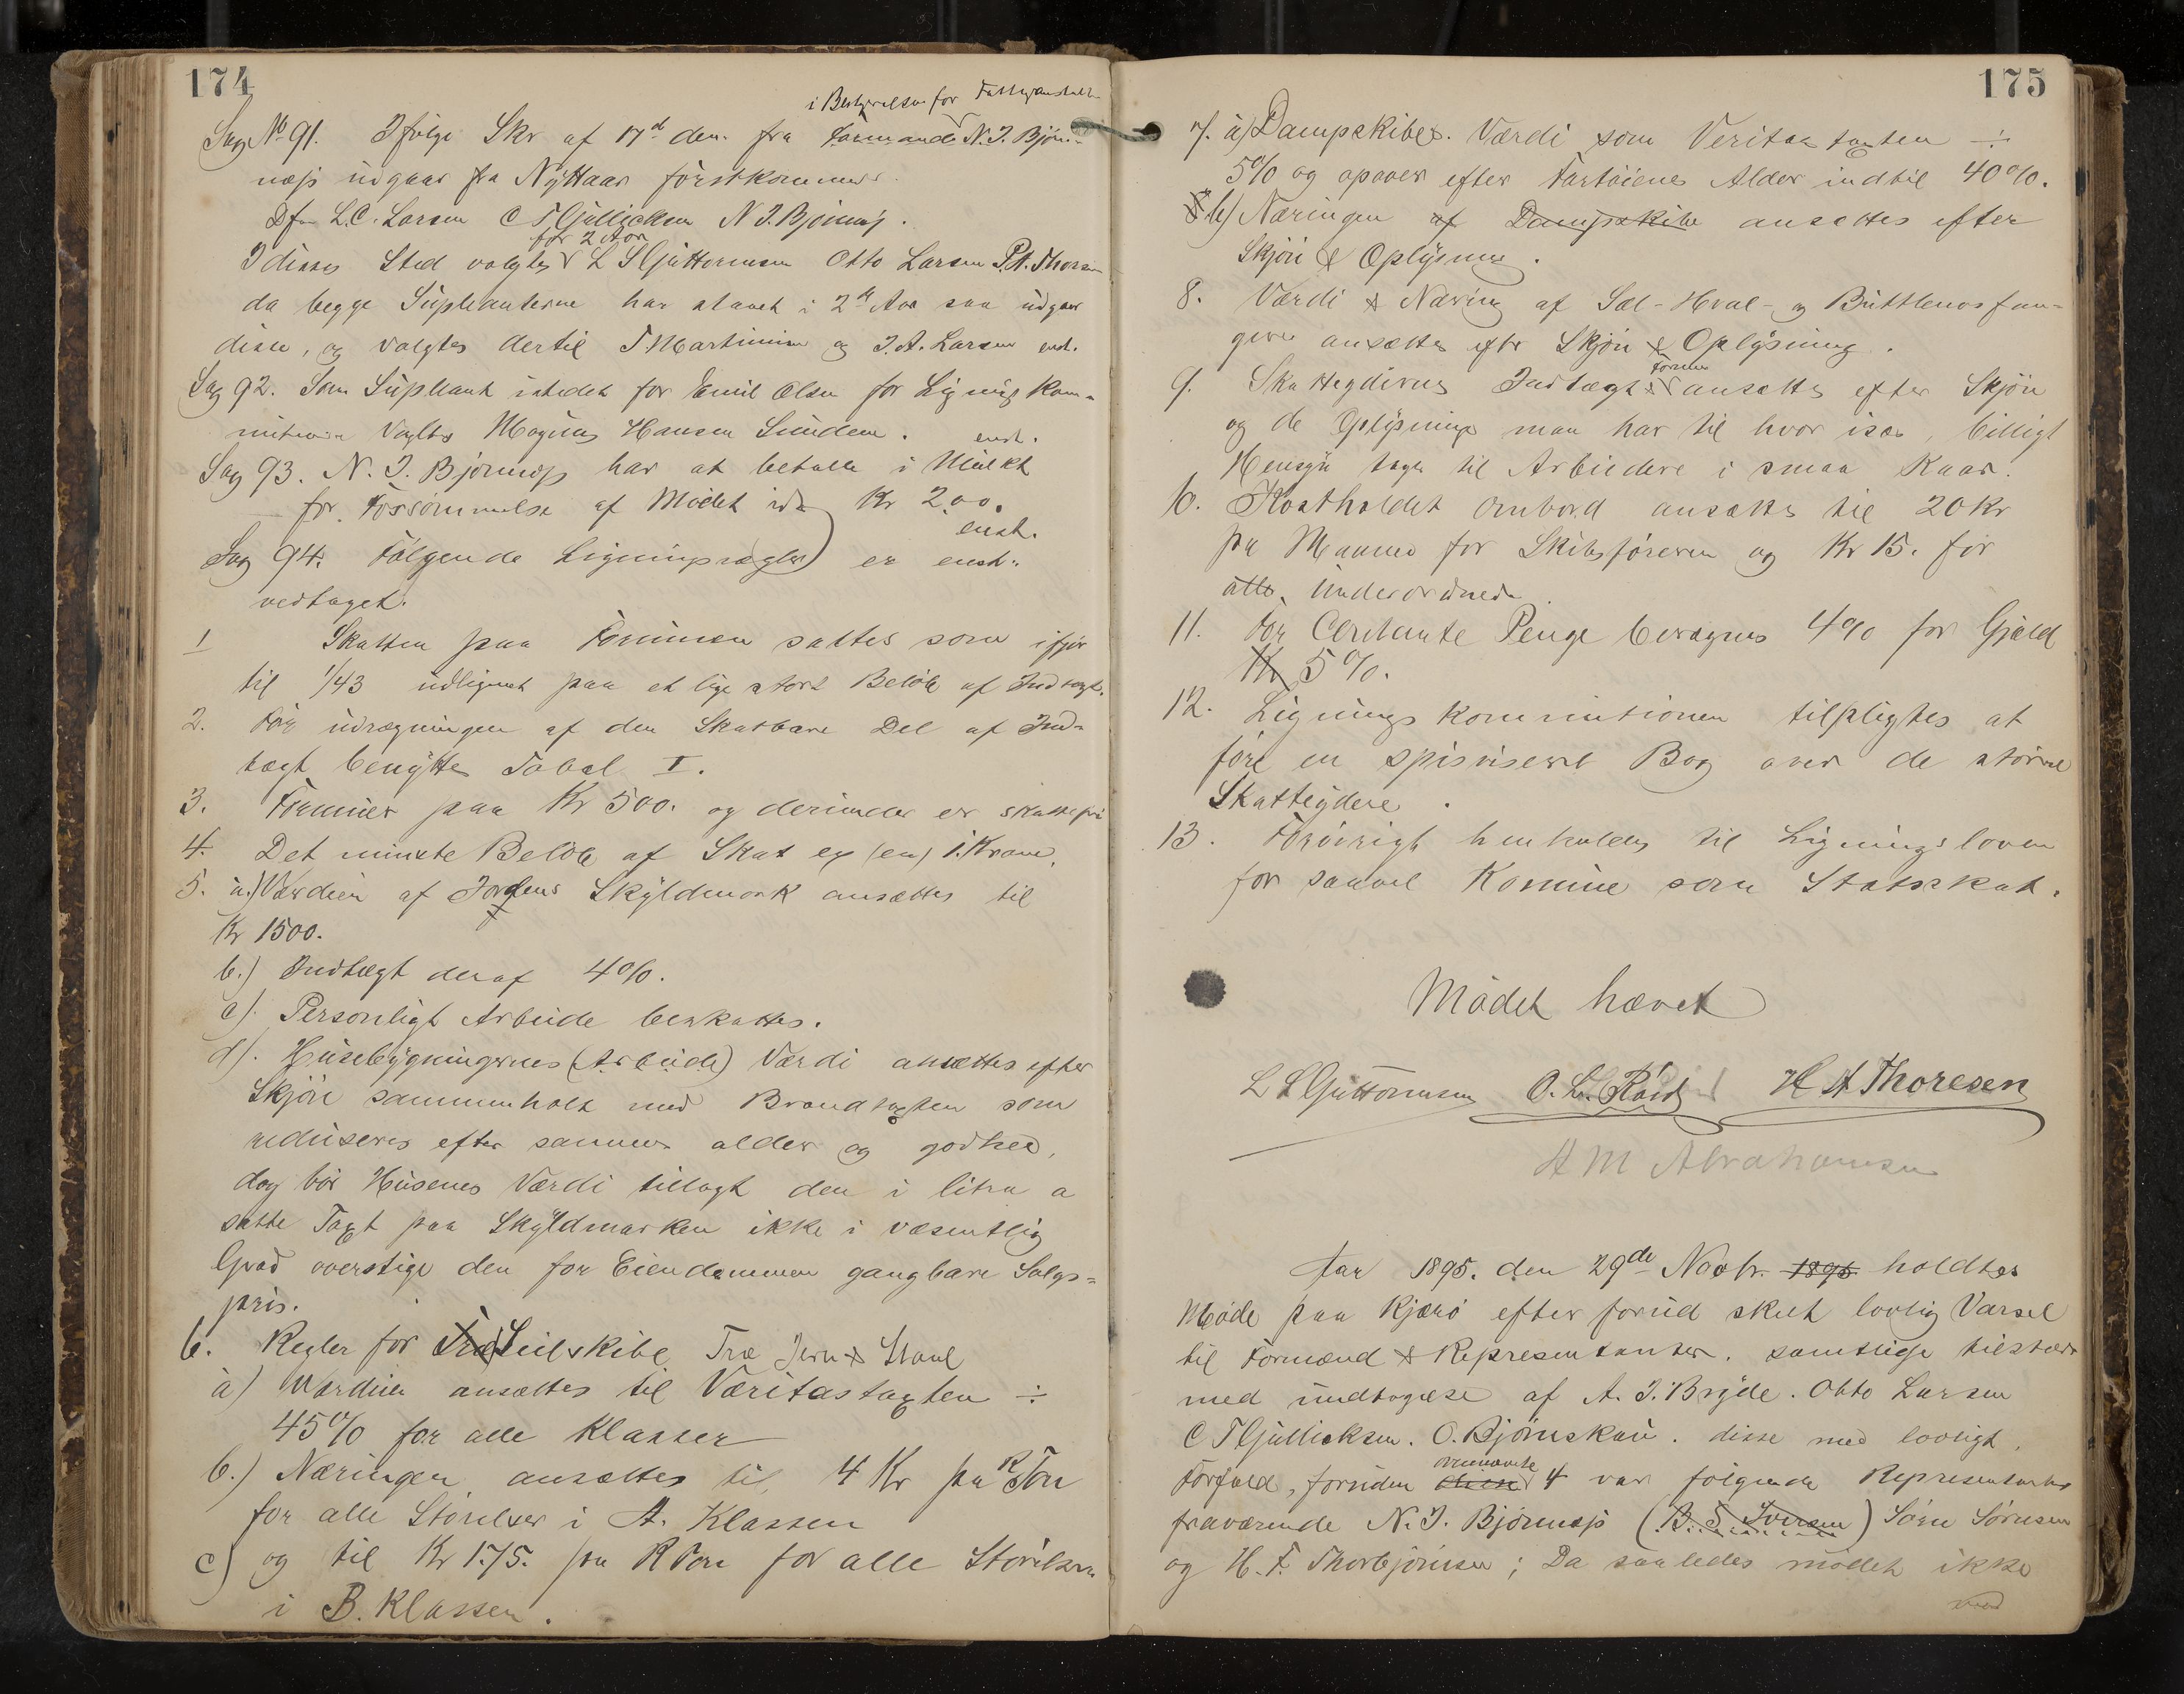 174
i Bestyrelsen for Fattiganstalten
Sag No 91. Ifølge Skr af 17d den. fra Formand N. J. Bjørn-
næss udgaar fra Nyttaar førstkommende
D'fra L.C. Larsen C T Gulliksen N J. Bjørnnæs.
for 2 Aar
I disses Sted valgtes L S Guttormsen Otto Larsen P. A. Thorsen
da begge Supleanterne har staaet i 2de Aar saa udgaar
disse, og valgtes dertil T. Martinius og J. A. Larsen enst.
Sag 92. Som Supleant istedet for Emil Olsen for Lignings Kom-
mitionen Valgtes Magnus Hansen Sunden. enst.
Sag 93. N. J. Bjørnnæss har at betalle i Mulkt
for Forsømmelse af Mødet ida Kr 2.00.
enst.
Sag 94. Følgende Ligningsregler er enst.
vedtaget.
1 Skatten paa Formuen sættes som ifjor
til 1/43 udlignet paa et lige stort Beløb af Indtægt.
2. For udregningen af den Skatbare Del af Ind-
tægt benyttes Tabel I.
3. Formuer paa Kr 500. og derunder er skattefri
4. Det minste Beløb af Skat er (en) 1. Krone.
5. a.) Værdien af Jordens Skyldmark ansættes til
Kr 1500.
b.) Indtægt deraf 4%.
c). Personligt Arbeide beskattes.
d). Husebygningernes (Arbeide) Værdi ansættes efter
Skjøn sammenholt med Brandtaxten som
reduseres efter sammes alder og godhed,
dog bør Husenes Værdi tillagt den i litra a
satte Taxt paa Skyldmarken ikke i væsentlig
Grad overstige den for Eiendommen gangbare Salgs=
pris.
6. Regler for Træ Seilskibe Træ Jern & Staal
a) Værdien ansættes til Væritastaxten ÷
45% for alle Klasser
b.) Næringen ansættes til 4 Kr pr R Ton
for alle Størelser i A. Klassen
c) og til Kr 1.75. pr R Ton for alle Størelser
i B. Klassen.
175
7. a) Dampskibes. Værdi som Veritastaxten ÷
5% og opover efter Fartøienes Alder indtil 40%.
8 b) Næringen af Dampskibe ansættes efter
Skjøn & Oplysning.
8. Værdi & Næring af Sæl- Hval- og Buttlenosfan-
gere ansættes efter Skjøn & Oplysning.
Formue
9. Skattegdivnes Indtægt & ansættes efter Skjøn
og de Oplysninger man har til hvor især, billigt
Hensyn tages til Arbeidere i smaa Kaar.
10. Kostholdet ombord ansættes til 20 Kr
pr Maaned for Skibsføreren og Kr 15. for
alle underordnede.
11. For Contante Penge beregnes 4% for Gjæld
Kr 5%.
12. Lignings kommintionen tilpligtes at
føre en spisviseret Bog over de større
Skatteydere.
13. Forøvrigt henholdes til Ligningsloven
for saavel Komune som Statsskat.
Mødet hævet
L S Guttormsen O. L. Røed H A Thoresen
A M Abrahamsen
Aar 1895. den 29de Novbr. 1895 holdtes
Møde paa Kjærø efter forud skeet lovlig Varsel
til Formænd & Representanter. samtlige tilstæde
med undtagelse af A. J. Bryde. Otto Larsen
C T Gulliksen. O. Bjørnskau. disse med lovligt
ovennævnte
Forfald, foruden disse 4 var følgende Representanter
fraværende N. J. Bjørnnæss (B. S. Iversen) Sørn Sørnsen
og H. F. Thorbjørnsen; Da saaledes mødet ikke
med